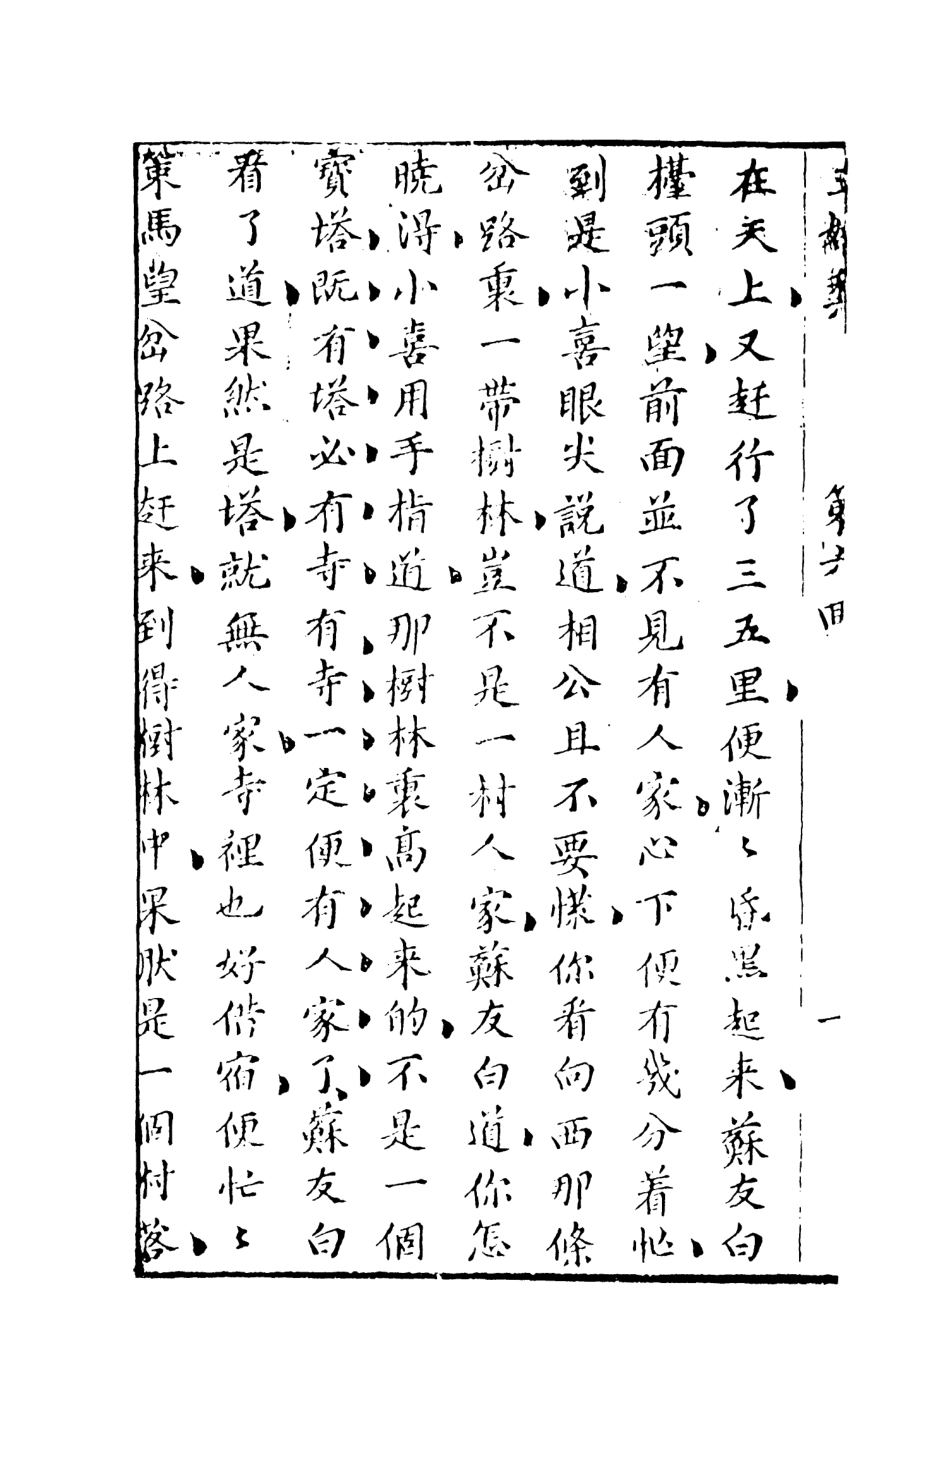 第六回
一
在天上又赶行了三五里便漸〻昏黑起来蘇友白
檯頭一望前面並不見有人家心下便有幾分着忙
到是小喜眼尖說道相公且不要慌你看向西那條
岔路裏一帶樹林豈不是一村人家蘇友白道你怎
曉得小喜用手指道那樹林裏高起来的不是一個
寳塔既有塔必有寺有寺一定便有人家了蘇友白
看了道果然是塔就無人家寺裡也好借宿便忙〻
策馬望岔路上赶来到得樹林中果然是一個村落